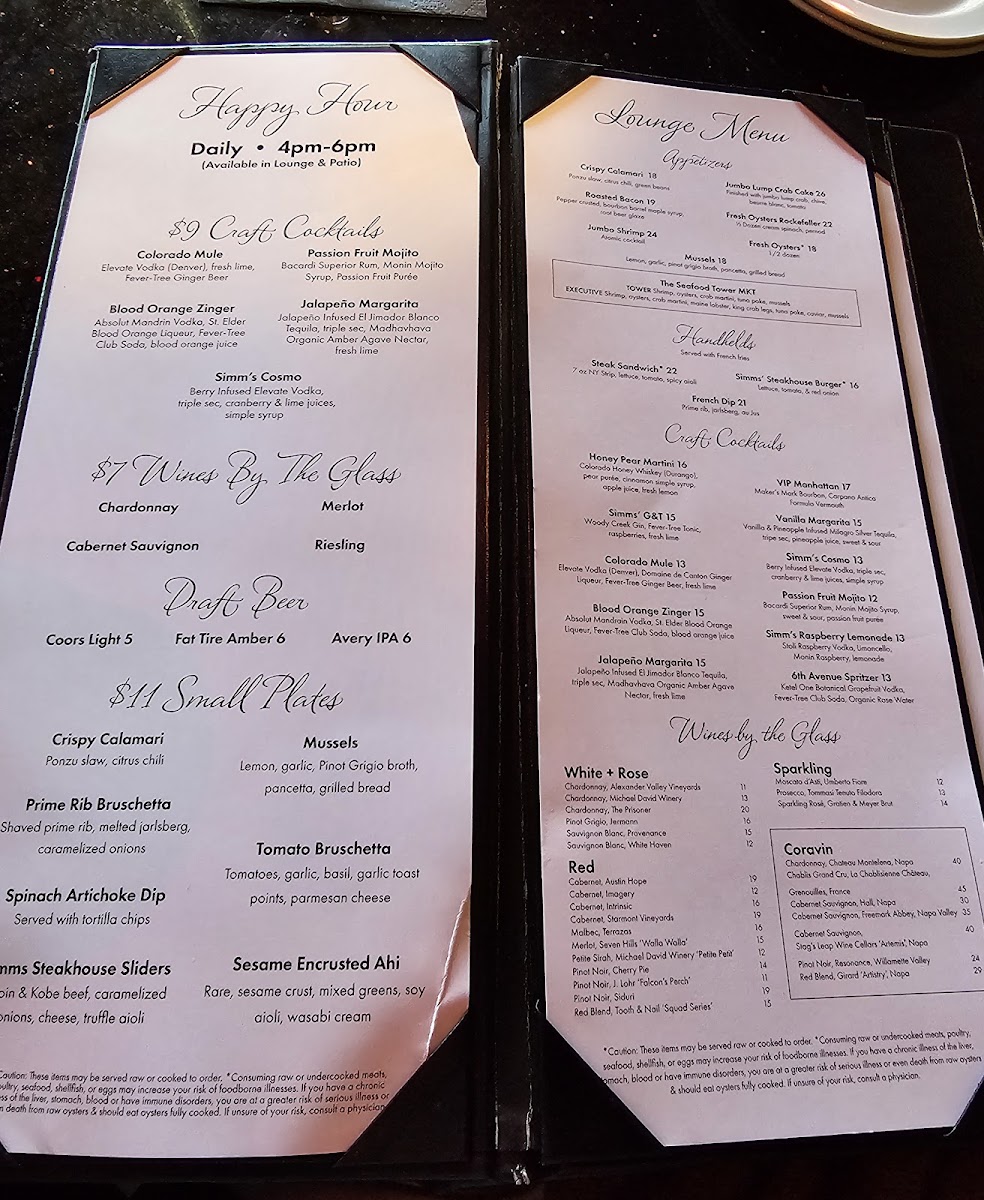 Happy Hour
Daily • 4pm-6pm
(Available in Lounge & Patio)
$9 Craft Cocktails
Colorado Mule
Elevate Vodka (Denver), fresh lime,
Fever-Tree Ginger Beer
Passion Fruit Mojito
Bacardi Superior Rum, Monin Mojito
Syrup, Passion Fruit Purée
Blood Orange Zinger
Absolut Mandrin Vodka, St. Elder
Blood Orange Liqueur, Fever-Tree
Club Soda, blood orange juice
Jalapeño Margarita
Jalapeño Infused El Jimador Blanco
Tequila, triple sec, Madhavhava
Organic Amber Agave Nectar,
fresh lime
Simm's Cosmo
Berry Infused Elevate Vodka,
triple sec, cranberry & lime juices,
simple syrup
$7 Wines By The Glass
Chardonnay
Merlot
Cabernet Sauvignon
Riesling
Draft Beer
Coors Light 5
Fat Tire Amber 6
Avery IPA 6
$11 Small Plates
Crispy Calamari
Ponzu slaw, citrus chili
Mussels
Lemon, garlic, Pinot Grigio broth,
pancetta, grilled bread
Prime Rib Bruschetta
Shaved prime rib, melted jarlsberg,
caramelized onions
Tomato Bruschetta
Tomatoes, garlic, basil, garlic toast
points, parmesan cheese
Spinach Artichoke Dip
Served with tortilla chips
mms Steakhouse Sliders
oin & Kobe beef, caramelized
onions, cheese, truffle aioli
Sesame Encrusted Ahi
Rare, sesame crust, mixed greens, soy
aioli, wasabi cream
Caution: These items may be served raw or cooked to order. *Consuming raw or undercooked meats,
oultry, seafood, shellfish, or eggs may increase your risk of foodborne illnesses. If you have a chronic
ss of the liver, stomach, blood or have immune disorders, you are at a greater risk of serious illness or
n death from raw oysters & should eat oysters fully cooked. If unsure of your risk, consult a physician
Lounge Menu
Appetizers
Crispy Calamari 18
Ponzu slaw, citrus chili, green beans
Jumbo Lump Crab Cake 26
Finished with jumbo lump crab, chive,
beurre blanc, tomato
Roasted Bacon 19
Pepper crusted, bourbon barrel maple syrup,
root beer glaze
Fresh Oysters Rockefeller 22
½ Dozen cream spinach, pernod
Jumbo Shrimp 24
Atomic cocktail
Fresh Oysters* 18
1/2 dozen
Mussels 18
Lemon, garlic, pinot grigio broth, pancetta, grilled bread
The Seafood Tower MKT
TOWER Shrimp, oysters, crab martini, tuna poke, mussels
EXECUTIVE Shrimp, oysters, crab martini, maine lobster, king crab legs, tuna poke, caviar, mussels
Handhelds
Served with French fries
Steak Sandwich* 22
7 oz NY Strip, lettuce, tomato, spicy aioli
Simms' Steakhouse Burger* 16
Lettuce, tomato, & red onion
French Dip 21
Prime rib, jarlsberg, au Jus
Craft Cocktails
Honey Pear Martini 16
Colorado Honey Whiskey (Durango),
pear purée, cinnamon simple syrup,
apple juice, fresh lemon
VIP Manhattan 17
Maker's Mark Bourbon, Carpano Antica
Formula Vermouth
Simms' G&T 15
Woody Creek Gin, Fever-Tree Tonic,
raspberries, fresh lime
Vanilla Margarita 15
Vanilla & Pineapple Infused Milagro Silver Tequila,
tripe sec, pineapple juice, sweet & sour
Colorado Mule 13
Elevate Vodka (Denver), Domaine de Canton Ginger
Liqueur, Fever-Tree Ginger Beer, fresh lime
Simm's Cosmo 13
Berry Infused Elevate Vodka, triple sec,
cranberry & lime juices, simple syrup
Passion Fruit Mojito 12
Bacardi Superior Rum, Monin Mojito Syrup,
sweet & sour, passion fruit purée
Blood Orange Zinger 15
Absolut Mandrain Vodka, St. Elder Blood Orange
Liqueur, Fever-Tree Club Soda, blood orange juice
Simm's Raspberry Lemonade 13
Stoli Raspberry Vodka, Limoncello,
Monin Raspberry, lemonade
Jalapeño Margarita 15
Jalapeño Infused El Jimador Blanco Tequila,
triple sec, Madhavhava Organic Amber Agave
Nectar, fresh lime
6th Avenue Spritzer 13
Ketel One Botanical Grapefruit Vodka,
Fever-Tree Club Soda, Organic Rose Water
Wines by the Glass
White + Rose
Chardonnay, Alexander Valley Vineyards 11
Chardonnay, Michael David Winery 13
Chardonnay, The Prisoner 20
Pinot Grigio, Jermann 16
Sauvignon Blanc, Provenance 15
Sauvignon Blanc, White Haven 12
Red
Cabernet, Austin Hope 19
Cabernet, Imagery 12
Cabernet, Intrinsic 16
Cabernet, Starmont Vineyards 19
Malbec, Terrazas 16
Merlot, Seven Hills 'Walla Walla' 15
Petite Sirah, Michael David Winery 'Petite Petit' 12
Pinot Noir, Cherry Pie 14
Pinot Noir, J. Lohr 'Falcon's Perch' 11
Pinot Noir, Siduri 19
Red Blend, Tooth & Nail 'Squad Series' 15
Sparkling
Moscato d'Asti, Umberto Fiore 12
Prosecco, Tommasi Tenuta Filodora 13
Sparkling Rosé, Gratien & Meyer Brut 14
Coravin
Chardonnay, Chateau Montelena, Napa 40
Chablis Grand Cru, La Chablisienne Château,
Grenouilles, France 45
Cabernet Sauvignon, Hall, Napa 30
Cabernet Sauvignon, Freemark Abbey, Napa Valley 35
Cabernet Sauvignon, 40
Stag's Leap Wine Cellars 'Artemis', Napa
Pinot Noir, Resonance, Willamette Valley 24
Red Blend, Girard 'Artistry', Napa 29
*Caution: These items may be served raw or cooked to order. *Consuming raw or undercooked meats, poultry,
seafood, shellfish, or eggs may increase your risk of foodborne illnesses. If you have a chronic illness of the liver,
omach, blood or have immune disorders, you are at a greater risk of serious illness or even death from raw oysters
& should eat oysters fully cooked. If unsure of your risk, consult a physician.